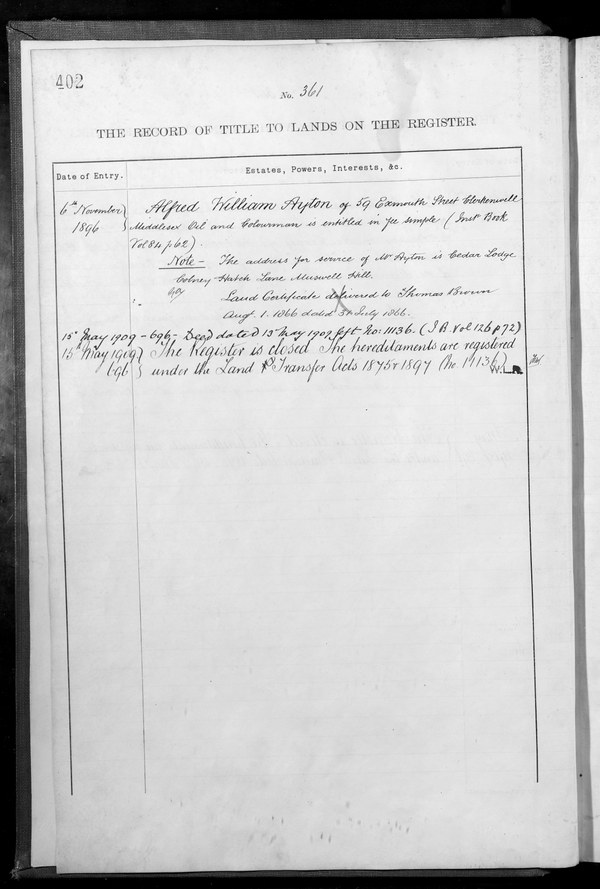 402
No. 361
THE RECORD OF TITLE TO LANDS ON THE REGISTER.
Date of Entry.
Estates, Powers, Interests, &c.
6th November 1896
Alfred William Ayton of 59 Exmouth Street Clerkenwell
Middlesex Oil and Colourman is entitled in fee simple (Inst Book
Vol 84 p 62).
Note - The address for service of Mr Ayton is Cedar Lodge
Colney Hatch Lane Muswell Hill.
Land Certificate delivered to Thomas Brown
Augt. 1. 1866 dated 31 July 1866.
15th May 1909 - 696 - Deed dated 13th May 1909 Appt No: 11136. (I B Vol 126 p 72)
15th May 1909 The Register is closed The hereditaments are registered
696 under the Land Transfer Acts 1875 & 1897 (No. 11136)
W.L.R.